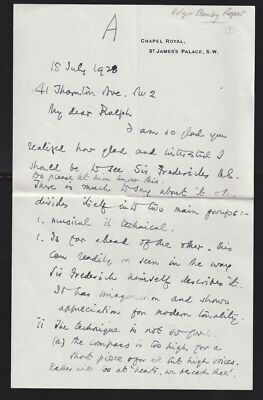 A
Edgar Stanley Roper
CHAPEL ROYAL,
ST JAMES'S PALACE, S.W.
18 July 1928
41 Thornton Ave. W2
My dear Ralph
I am so glad you
realised how glad and interested I
should be to see Sir Frederick's MS.
Do please let him know this.
There is much to say about it &
divides itself into two main groups:-
1. musical ii technical.
1. Is far ahead of the other. this
can readily be seen in the way
Sir Frederick himself describes it.
It has imagination and shows
appreciation for modern tonality.
ii The technique is not so
(a) the compass is too high for a
short piece for all but high voices.